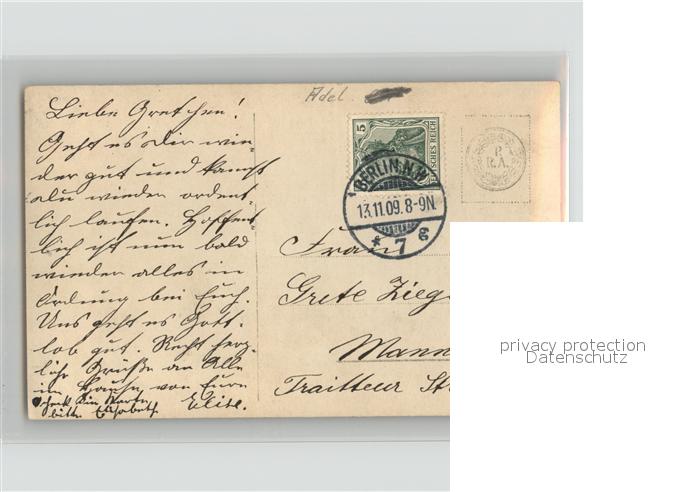 Adel.
Liebe Gretchen!
Geht es Dir wie-
der gut und kannst
du wieder ordent-
lich laufen. Hoffent-
lich ist nun bald
wieder alles in
Ordnung bei Euch.
Uns geht es Gott-
lob gut. Recht herz-
liche Grüße an Alle
im Hause, von Eure
Elise.
bitte Elisabeth
5
DEUTSCHES REICH
BERLIN.N.W.
13.11.09.8-9N.
* 7 g
P
R.A.
Frau
Grete Zieg
Mann
Traitteur St
privacy protection
Datenschutz